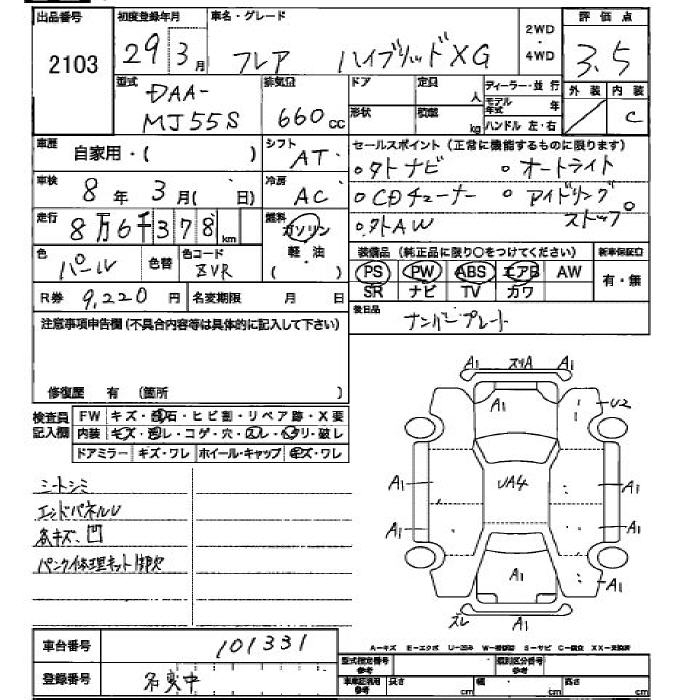 出品番号 初度登録年月 車名・グレード 2WD・4WD 評価点
2103 29年3月 フレア ハイブリッドXG 3.5
型式 排気量 ドア 定員 人 ディーラー・並行 外装 内装
DAA- 660cc 形状 積載 kg モデル年式 年 C
MJ55S ハンドル 左・右
車歴 自家用・( ) シフト AT セールスポイント(正常に機能するものに限ります)
車検 8年3月( 日) 冷房 AC 。外ナビ 。オートライト
走行 8万6千378km 燃料 ガソリン 。CDチューナー 。アイドリングストップ。
軽・油 ( ) 。外AW
色 パール 色替 色コード ZVR 装備品(純正品に限り〇をつけてください) 新車保証書
PS PW ABS エアB AW 有・無
SR ナビ TV カワ
R券 9,220円 名変期限 月 日 後日品 ナンバープレート
注意事項申告欄(不具合内容等は具体的に記入して下さい)
修復歴 有 (箇所 )
検査員記入欄 FW キズ・飛石・ヒビ割・リペア跡・X要
内装 キズ・汚レ・コゲ・穴・スレ・ヘタリ・破レ
ドアミラー キズ・ワレ ホイール・キャップ キズ・ワレ
シートシミ
エンドパネルU
各キズ、凹
パンク修理キット欠
A1 スリA A1
A1 U2
A1 UA4 A1
A1 A1
A1 A1
スレ A1
車台番号 101331
登録番号 名変中
A-キズ E-エクボ U-凹み W-補修跡 S-サビ C-腐食 XX-交換済
型式指定番号 参考 類別区分番号 参考
車庫証明用 参考 長さ cm 幅 cm 高さ cm